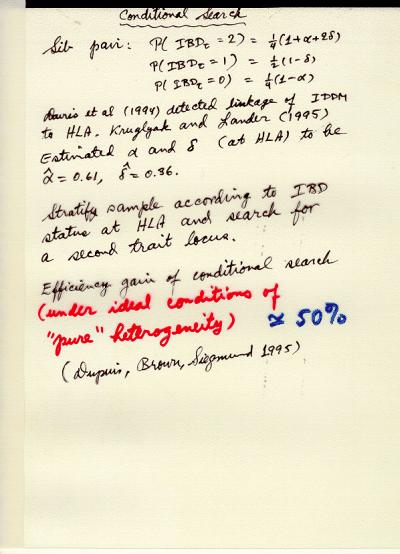 Conditional Search
Sib pair: P(IBDτ = 2) = ¼(1+α+2δ)
P(IBDτ = 1) = ½(1-δ)
P(IBDτ = 0) = ¼(1-α)
Davis et al (1994) detected linkage of IDDM
to HLA. Kruglyak and Lander (1995)
Estimated α and δ (at HLA) to be
α̂ = 0.61, δ̂ = 0.36.
Stratify sample according to IBD
status at HLA and search for
a second trait locus.
Efficiency gain of conditional search
(under ideal conditions of
"pure" heterogeneity) ≃ 50%
(Dupuis, Brown, Siegmund 1995)